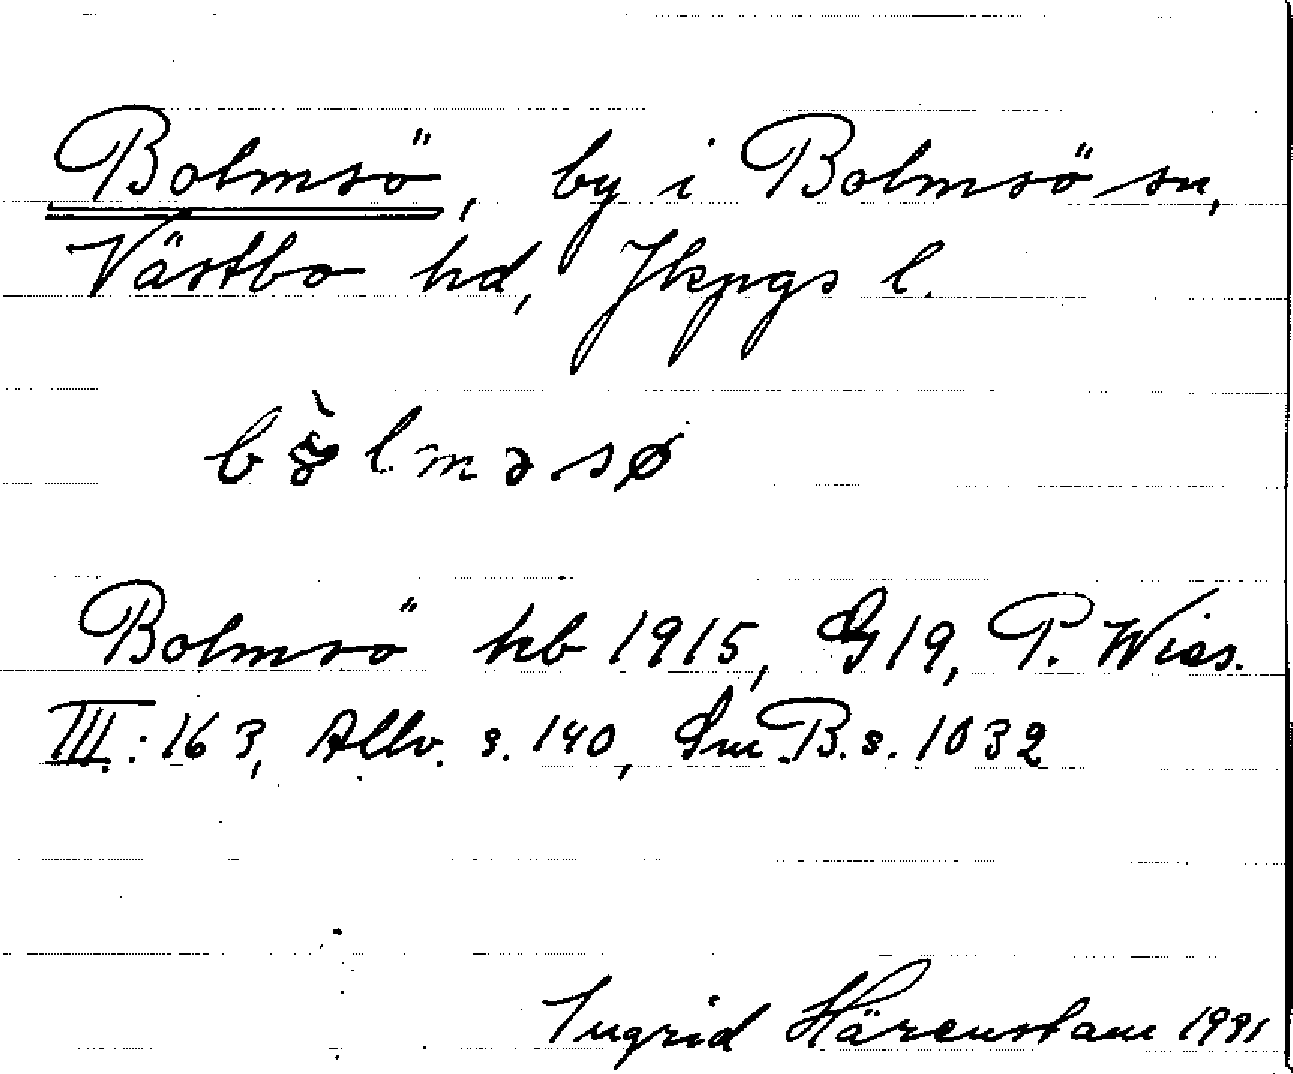 Bolmsö, by i Bolmsö sn,
Västbo hd, Jkpgs l.
Bolmsö kb 1915, G19, P. Wies.
III: 163, Allv. s. 140, Sm.B. s. 1032
Ingrid Härenstam 1991